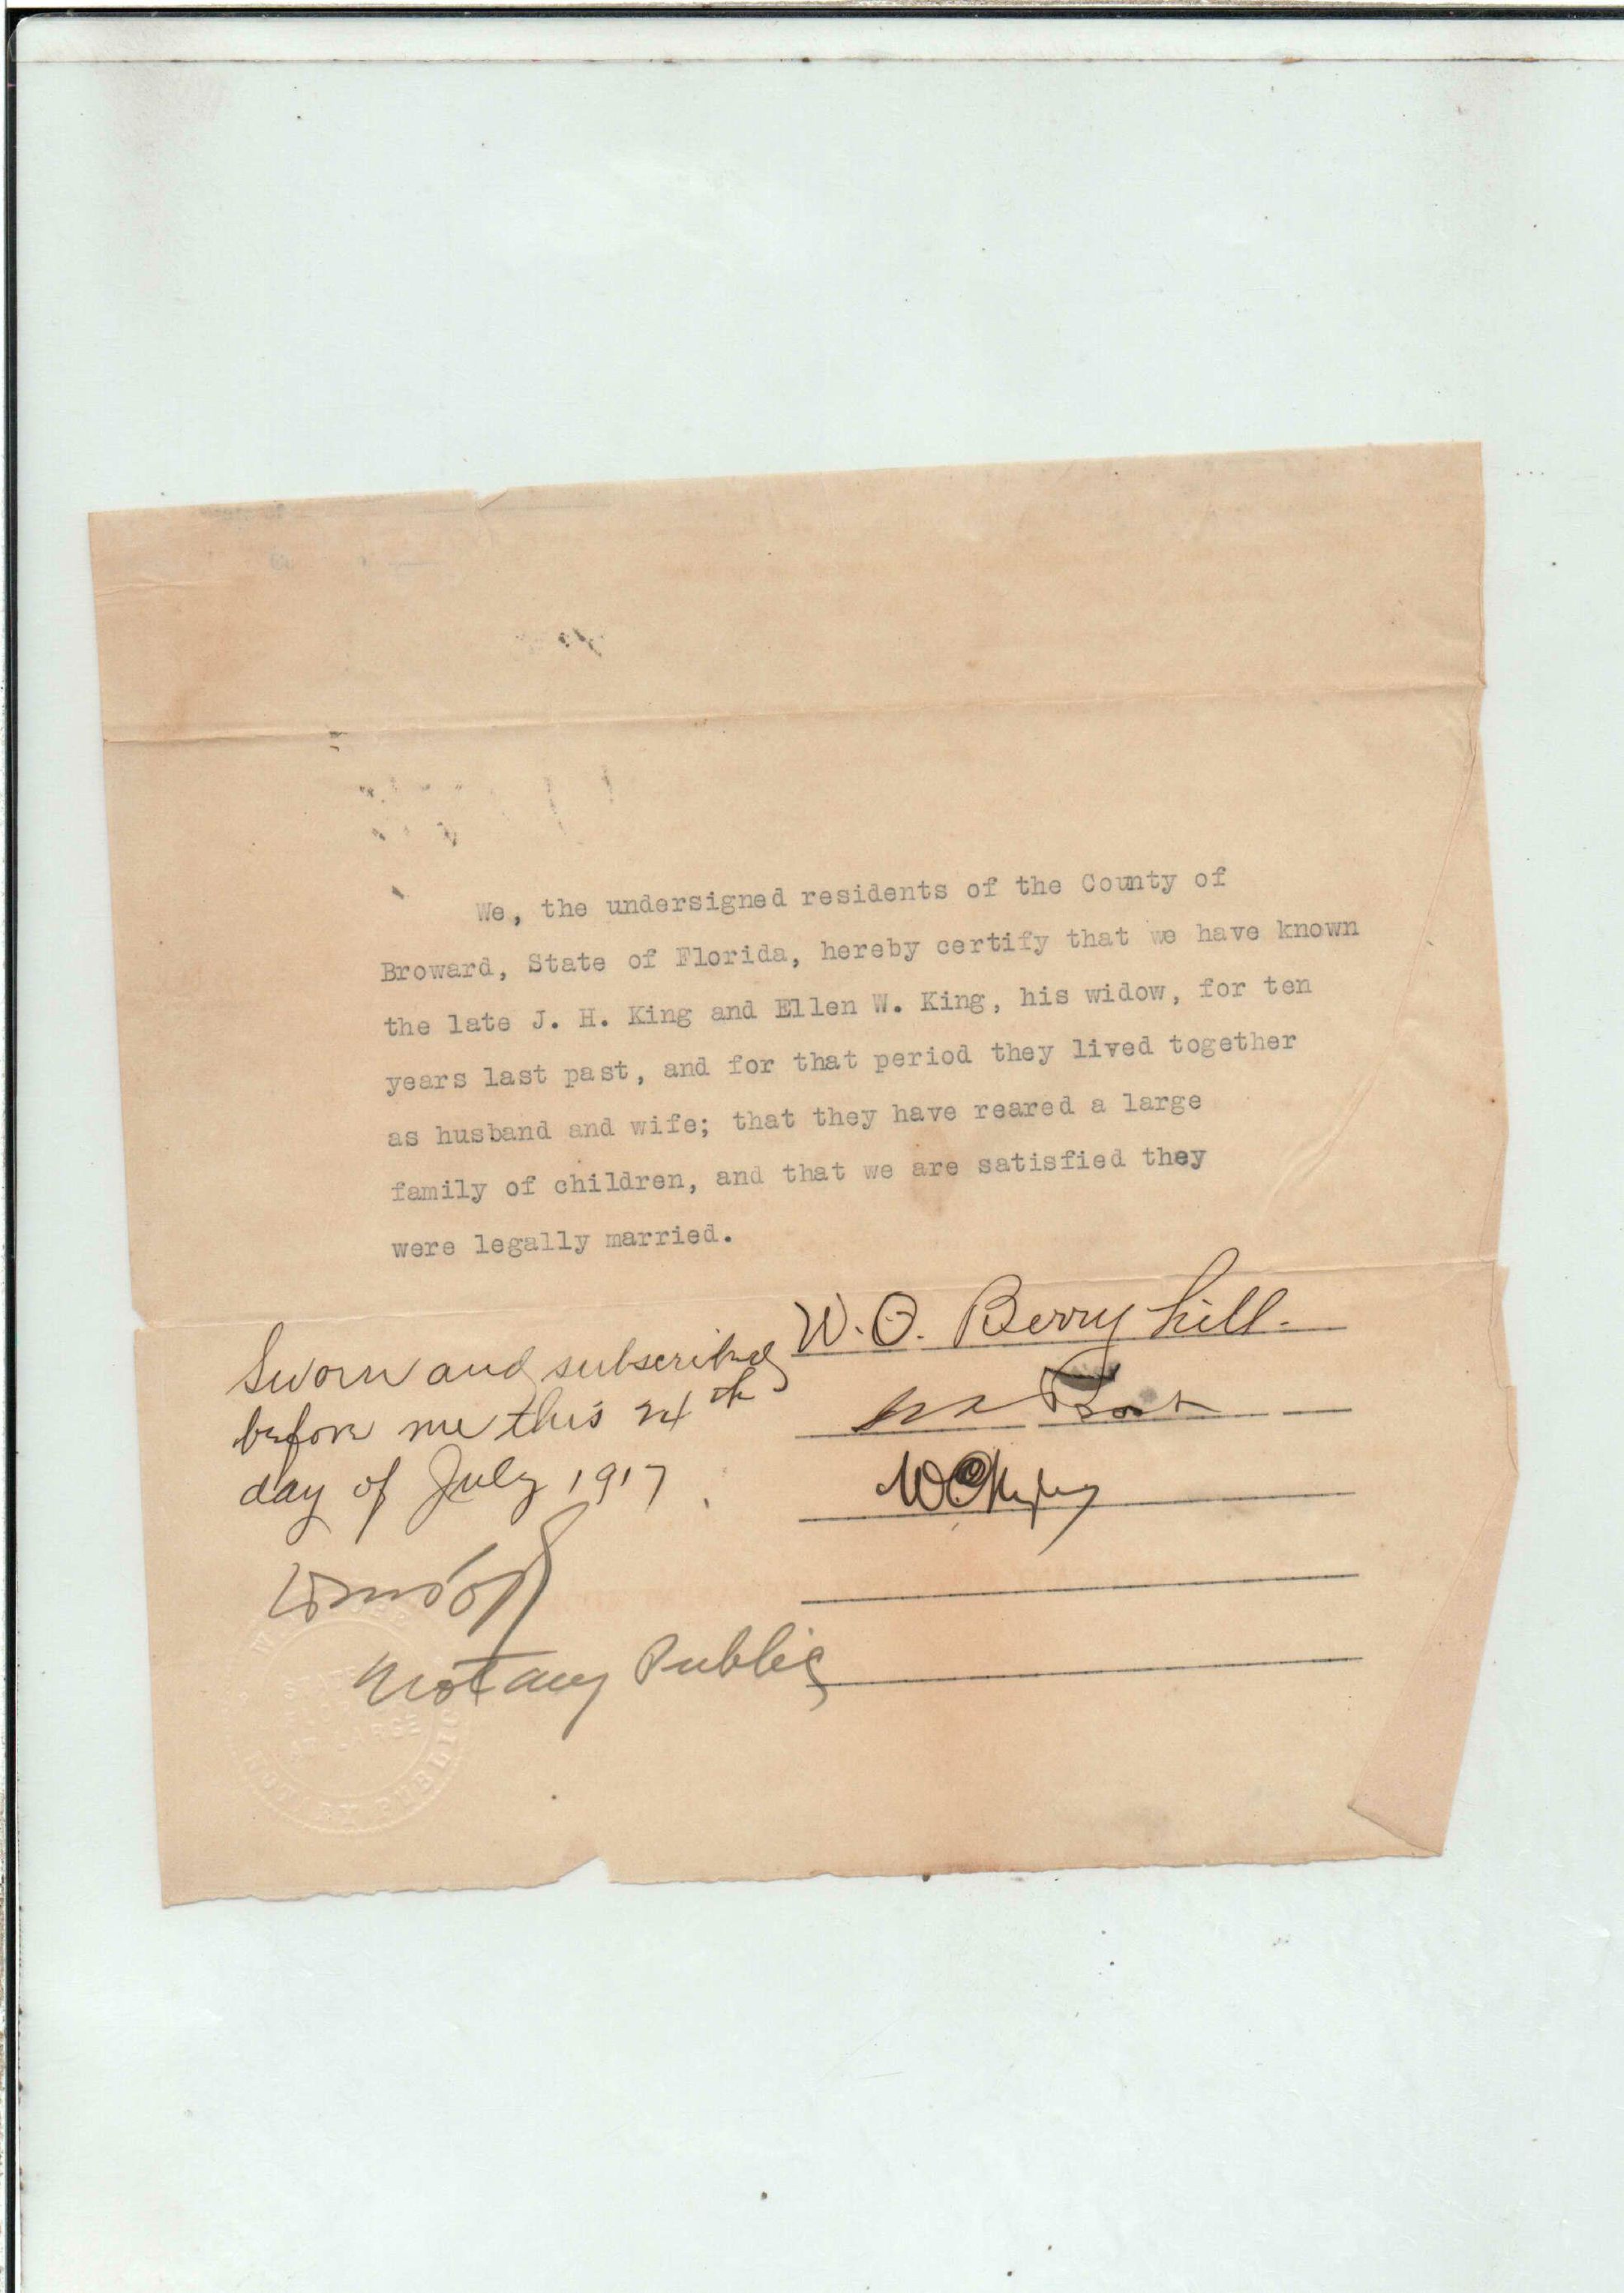 We, the undersigned residents of the County of
Broward, State of Florida, hereby certify that we have known
the late J. H. King and Ellen W. King, his widow, for ten
years last past, and for that period they lived together
as husband and wife; that they have reared a large
family of children, and that we are satisfied they
were legally married.
W. O. Berryhill.
Sworn and subscribed
before me this 24th
day of July 1917.
Notary Public
AT LARGE
NOTARY PUBLIC